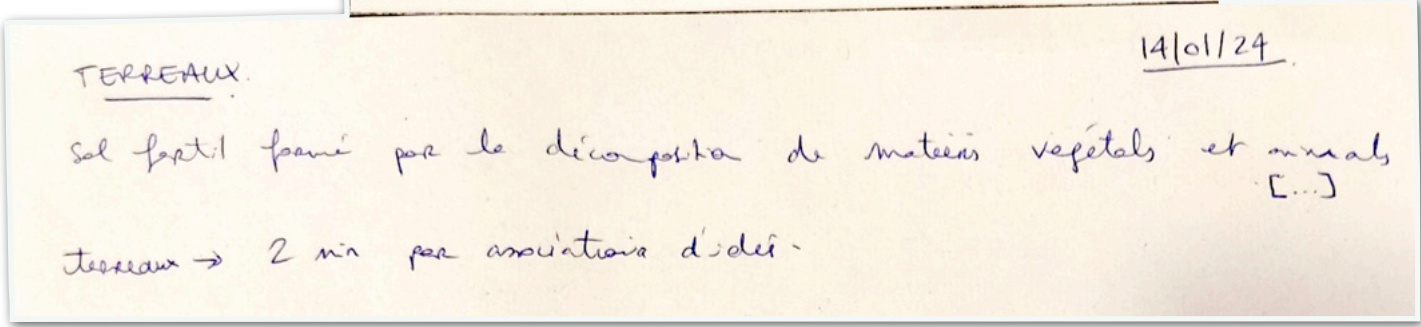 14/01/24
TERREAUX.
sol fertil formé par la décomposition de matières végétals et animals
[...]
terreaux → 2 min par associations d'idée.